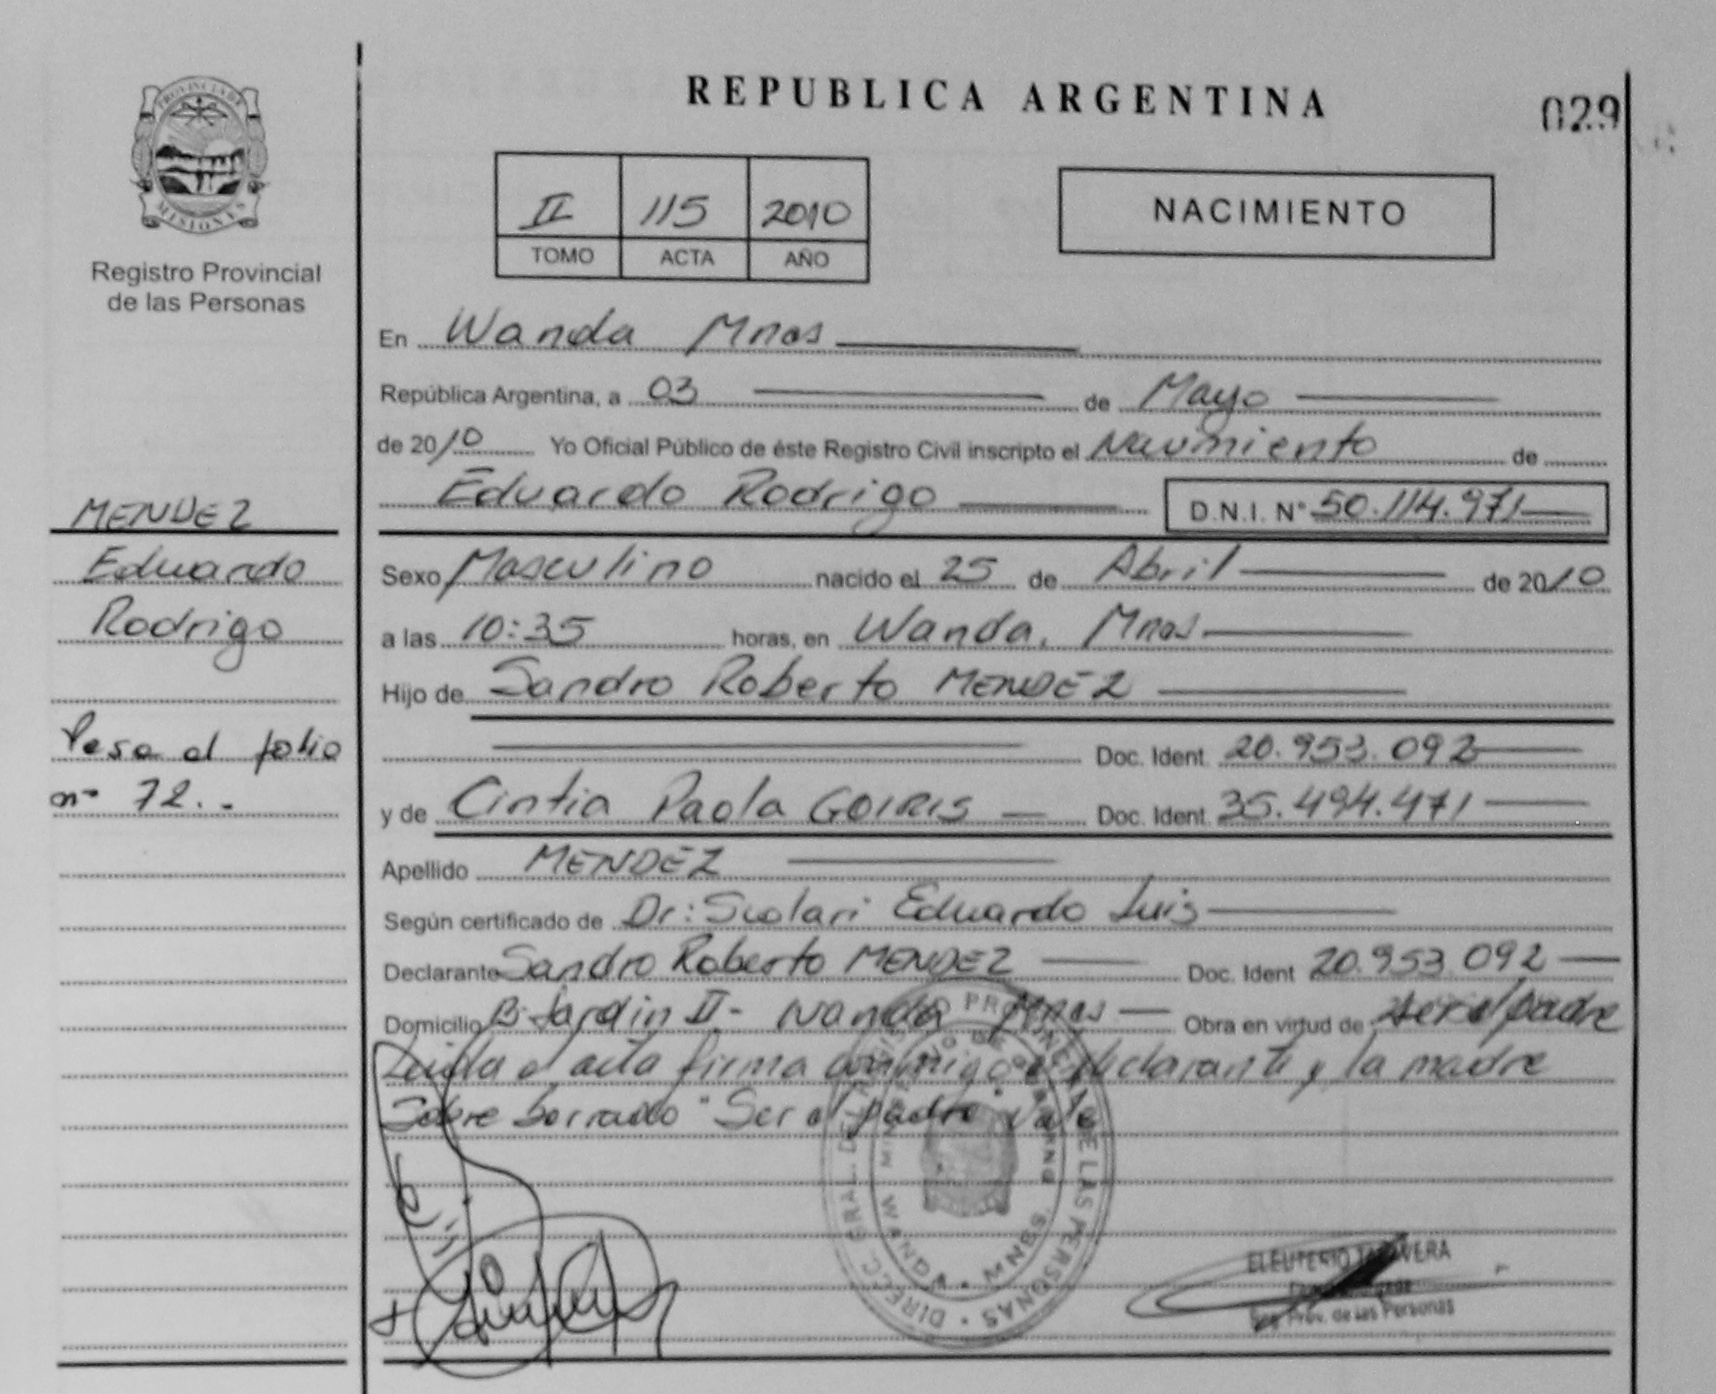 PROVINCIA DE
MISIONES
Registro Provincial
de las Personas
MENDEZ
Eduardo
Rodrigo
Pasa al folio
nº 72.-
REPUBLICA ARGENTINA
029
II 115 2010
TOMO ACTA AÑO
NACIMIENTO
En Wanda Mnes
República Argentina, a 03 de Mayo
de 2010 Yo Oficial Público de éste Registro Civil inscripto el Nacimiento de
Eduardo Rodrigo D.N.I. Nº 50.114.971
Sexo Masculino nacido el 25 de Abril de 2010
a las 10:35 horas, en Wanda, Mnes
Hijo de Sandro Roberto MENDEZ
Doc. Ident. 20.953.092
y de Cintia Paola GOIRIS Doc. Ident. 35.494.471
Apellido MENDEZ
Según certificado de Dr: Scolari Eduardo Luis
Declarante Sandro Roberto MENDEZ Doc. Ident 20.953.092
Domicilio B: Jardin II- Wanda Mnes Obra en virtud de ser el padre
Leida el acta firma conmigo el declarante y la madre
Sobre borrado "Ser el padre" Vale
DIRECC. GRAL. DEL REGISTRO PROVINCIAL DE LAS PERSONAS
WANDA MNES.
ELEUTERIO
Reg. Prov. de las Personas